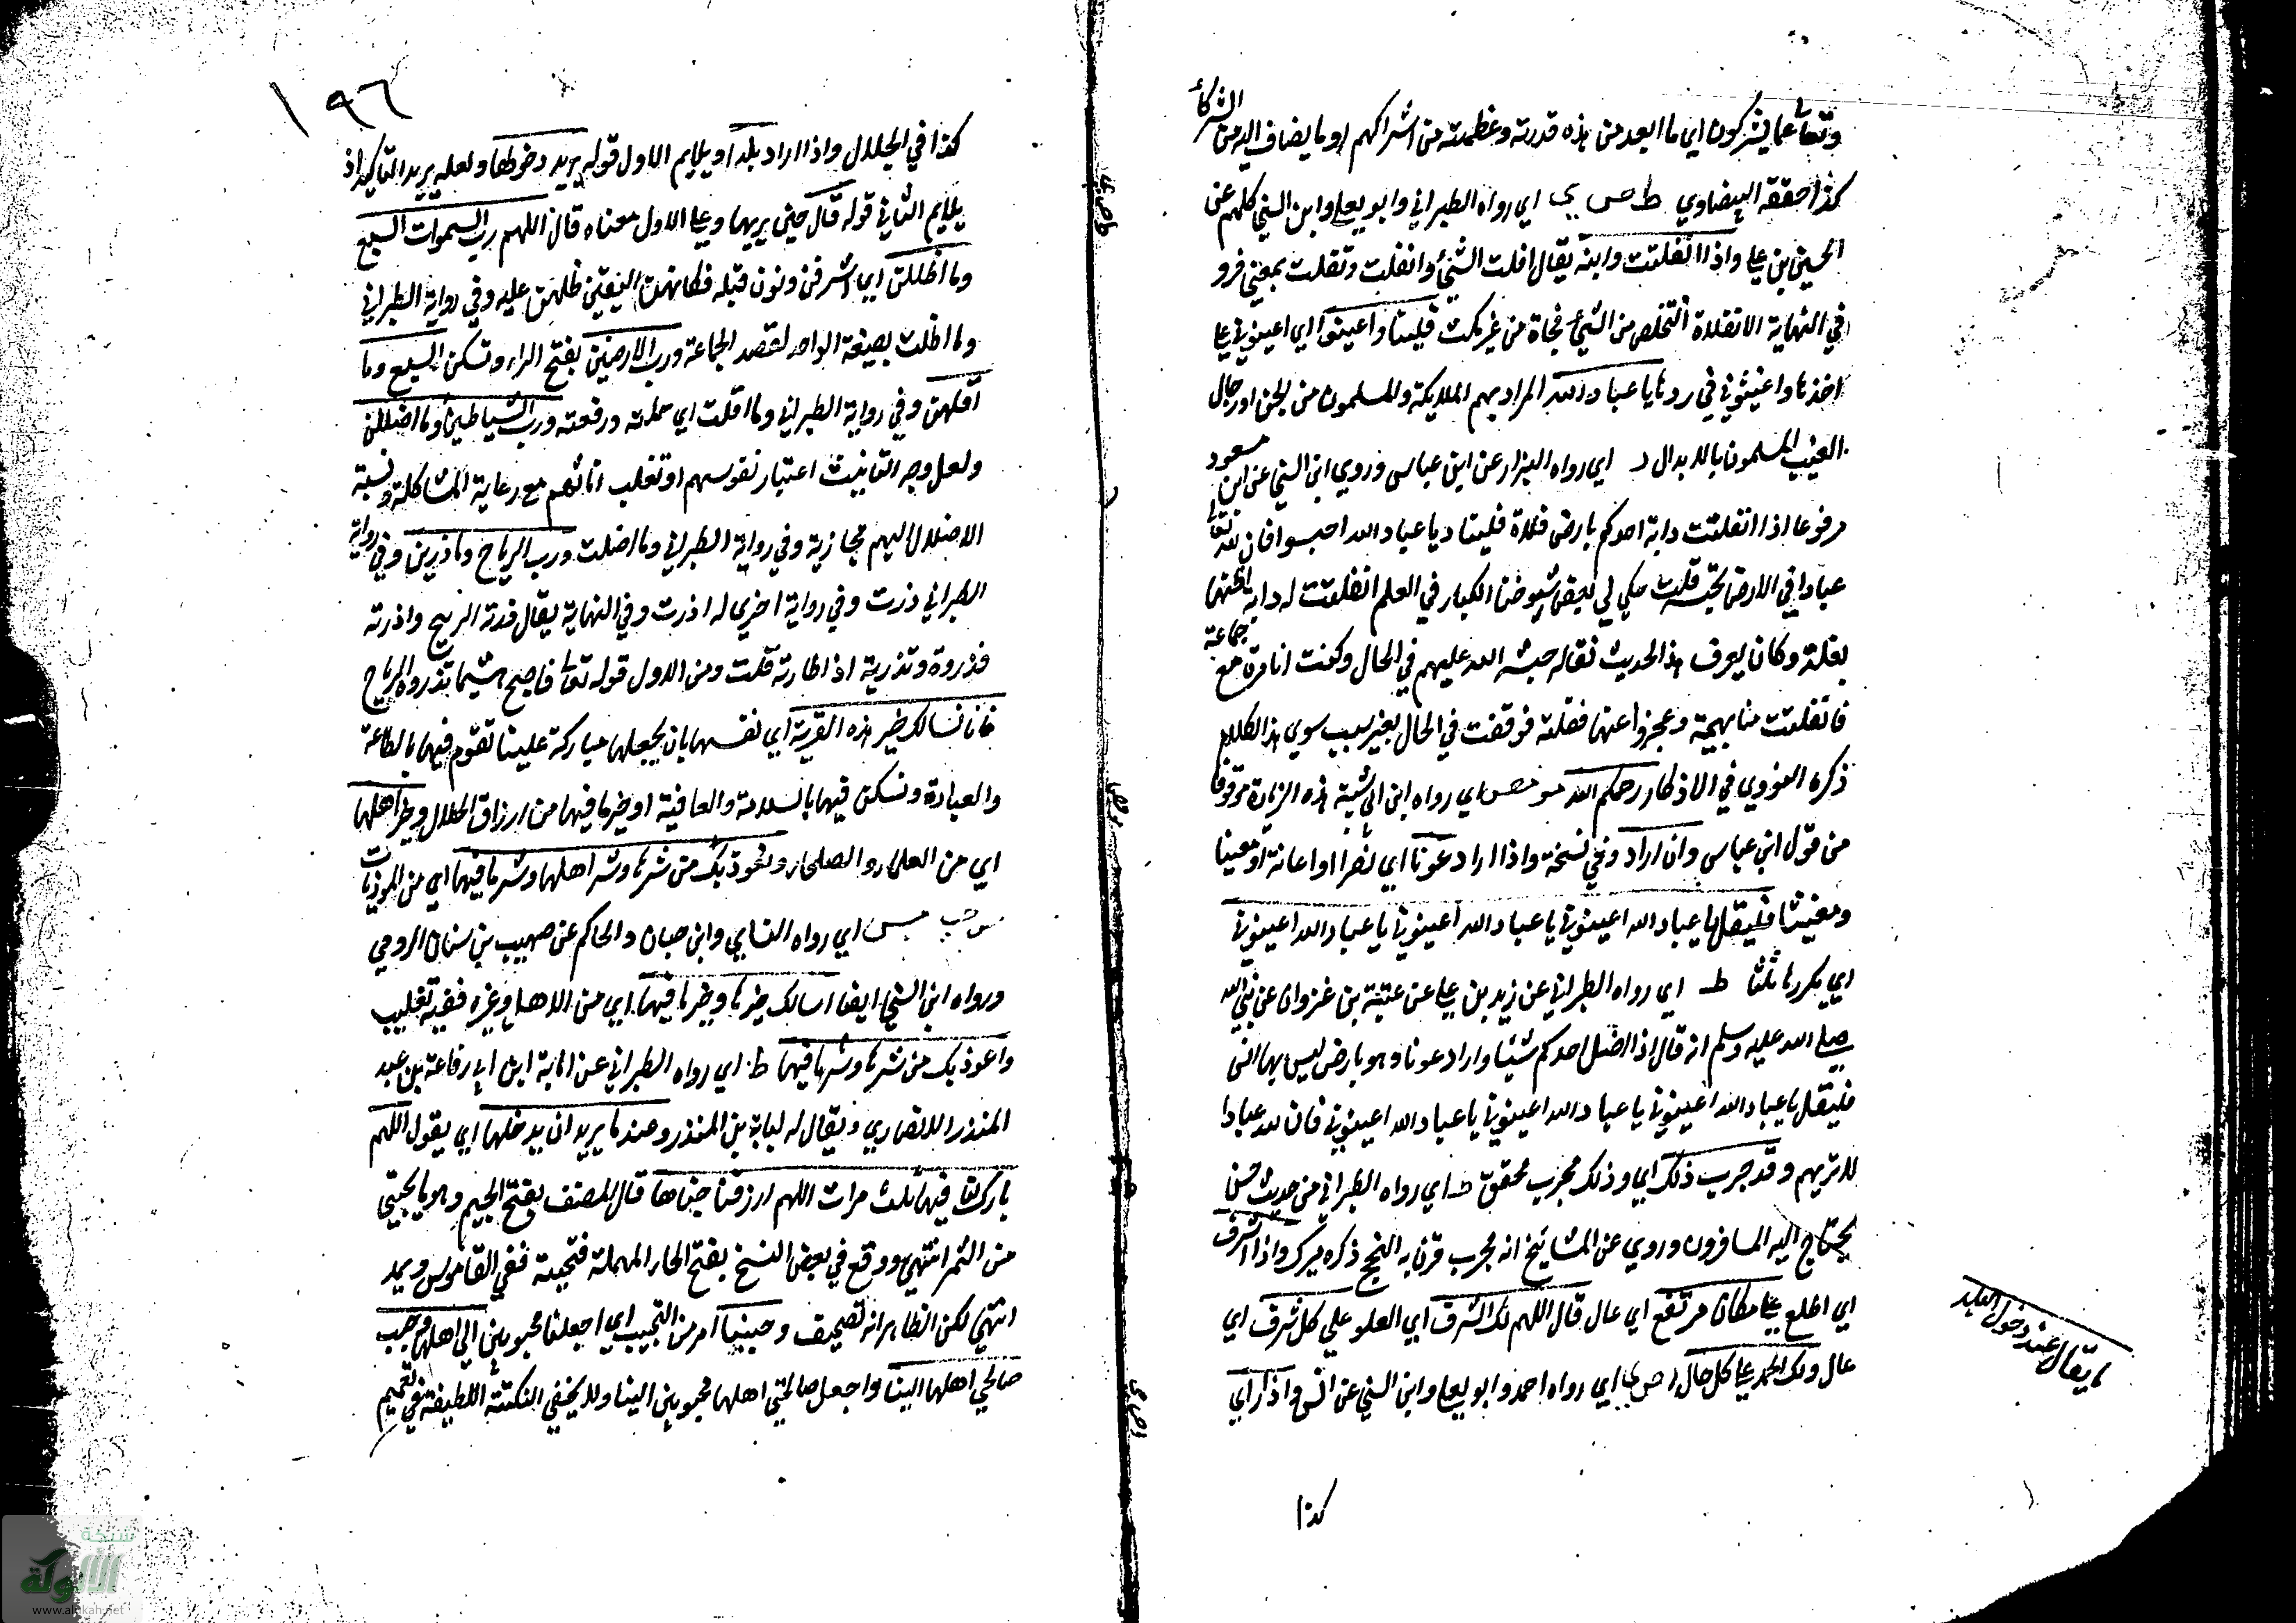 وتعالى عما يشركون اي ما ابعد من هذه قدرته وعظمته من اشراكهم او ما يضاف اليه من الشركاء
كذا حققه البيضاوي ط ص ي اي رواه الطبراني وابو يعلى وابن السني كلهم عن
الحسين بن علي واذا انفلتت دابته يقال افلت الشيء وانفلت وتفلت بمعنى فر و
في النهاية الانفلات التخلص من الشيء فجاة من غير مكث فليناد اعينوا اي اعينوني على
اخذها واغيثوني في ردها يا عباد الله المراد بهم الملايكة والمسلمون من الجن او رجال
الغيب المسمون بالابدال ر اي رواه البزار عن ابن عباس وروي ابن السني عن ابن مسعود
مرفوعا اذا انفلتت دابة احدكم بارض فلاة فليناد يا عباد الله احبسوا فان لله تعالى
عبادا في الارض تحبسه قلت حكي لي بعض شيوخنا الكبار في العلم انفلتت له دابة اظنها
بغلة وكان يعرف هذا الحديث فقاله حبسه الله عليهم في الحال وكنت انا مرة مع جماعة
فانفلتت منا بهيمة وعجزوا عنها فقلته فوقفت في الحال بغير سبب سوي هذا الكلام
ذكره النووي في الاذكار رحمكم الله مو مص اي رواه ابن ابي شيبة هذه الزيادة موقوفا
من قول ابن عباس وان اراد وفي نسخة واذا اراد عونا اي نصرا او اعانة او معينا
ومغيثا فليقل يا عباد الله اعينوني يا عباد الله اعينوني يا عباد الله اعينوني
اي يكررها ثلثا ط اي رواه الطبراني عن زيد بن علي عن عتبة بن غزوان عن نبي الله
صلى الله عليه وسلم انه قال اذا اضل احدكم شيئا واراد عونا وهو بارض ليس بها انس
فليقل يا عباد الله اعينوني يا عباد الله اعينوني يا عباد الله اعينوني فان لله عبادا
لا تريهم وقد جرب ذلك اي وذلك مجرب محقق ط اي رواه الطبراني من حديث حسن
يحتاج اليه المسافرون وروي عن المشايخ انه مجرب قرن به النجح ذكره ميرك واذا اشرف
اي اطلع على مكان مرتفع اي عال قال اللهم لك الشرف اي العلو علي كل شرف اي
عال ولك الحمد على كل حال ا ص ي اي رواه احمد وابو يعلى وابن السني عن انس واذا راي
كذا
ما يقال عند دخول البلد
١٩٦
كذا في الجلال واذا اراد بلدا ويلايم الاول قوله يريد دخولها ولعله يريد التاكيد اذ
يلايم الثاني قوله قال حين يريها وعلى الاول معناه قال اللهم رب السموات السبع
وما اظللن اي اشرفن ودون قبله فكانهن القين ظلهن عليه وفي رواية الطبراني
وما اظلت بصيغة الواحد لقصد الجماعة ورب الارضين بفتح الراء وتسكن السبع وما
اقللن وفي رواية الطبراني وما اقلت اي حملته ورفعته ورب الشياطين وما اضللن
ولعل وجه التانيث اعتبار نفوسهم او تغلب اناثهم مع رعاية المشاكلة ونسبة
الاضلال اليهم مجازية وفي رواية الطبراني وما اضلت ورب الرياح وما ذرين وفي رواية
الطبراني ذرت وفي رواية اخرى له اذرت وفي النهاية يقال ذرته الريح واذرته
تذروه وتذريه اذا طارته قلت ومن الاول قوله تعالى فاصبح هشيما تذروه الرياح
فانا نسالك خير هذه القرية اي نفسها بان يجعلها مباركة علينا نقوم فيها بالطاعة
والعبادة ونسكن فيها بالسلامة والعافية او خير ما فيها من ارزاق الحلال وخير اهلها
اي من العلماء والصلحاء ونعوذ بك من شرها وشر اهلها وشر ما فيها اي من الموذيات
س حب مس اي رواه النسايي وابن حبان والحاكم عن صهيب بن سنان الرومي
ورواه ابن السني ايضا اسالك خيرها وخير ما فيها اي من الاهل وغيره ففيه تغليب
واعوذ بك من شرها وشر ما فيها ط اي رواه الطبراني عن لبابة ابن ابي رفاعة بن عبد
المنذر الانصاري ويقال له لبابة بن المنذر وعندما يريد ان يدخلها اي يقول اللهم
بارك لنا فيها ثلث مرات اللهم ارزقنا جناها قال المصنف بفتح الجيم وهو ما يجتنى
من الثمر انتهى ووقع في بعض النسخ بفتح الحاء المهملة فتحية ففي القاموس ويمد
انتهى لكن الظاهر انه تصحيف وحببنا امر من التحبيب اي اجعلنا محبوبين الي اهلها وحبب
صالحي اهلها الينا واجعل صالحي اهلها محبوبين الينا ولا يخفى النكتة اللطيفة في تعميم
شبكة
الألوكة
www.alukah.net